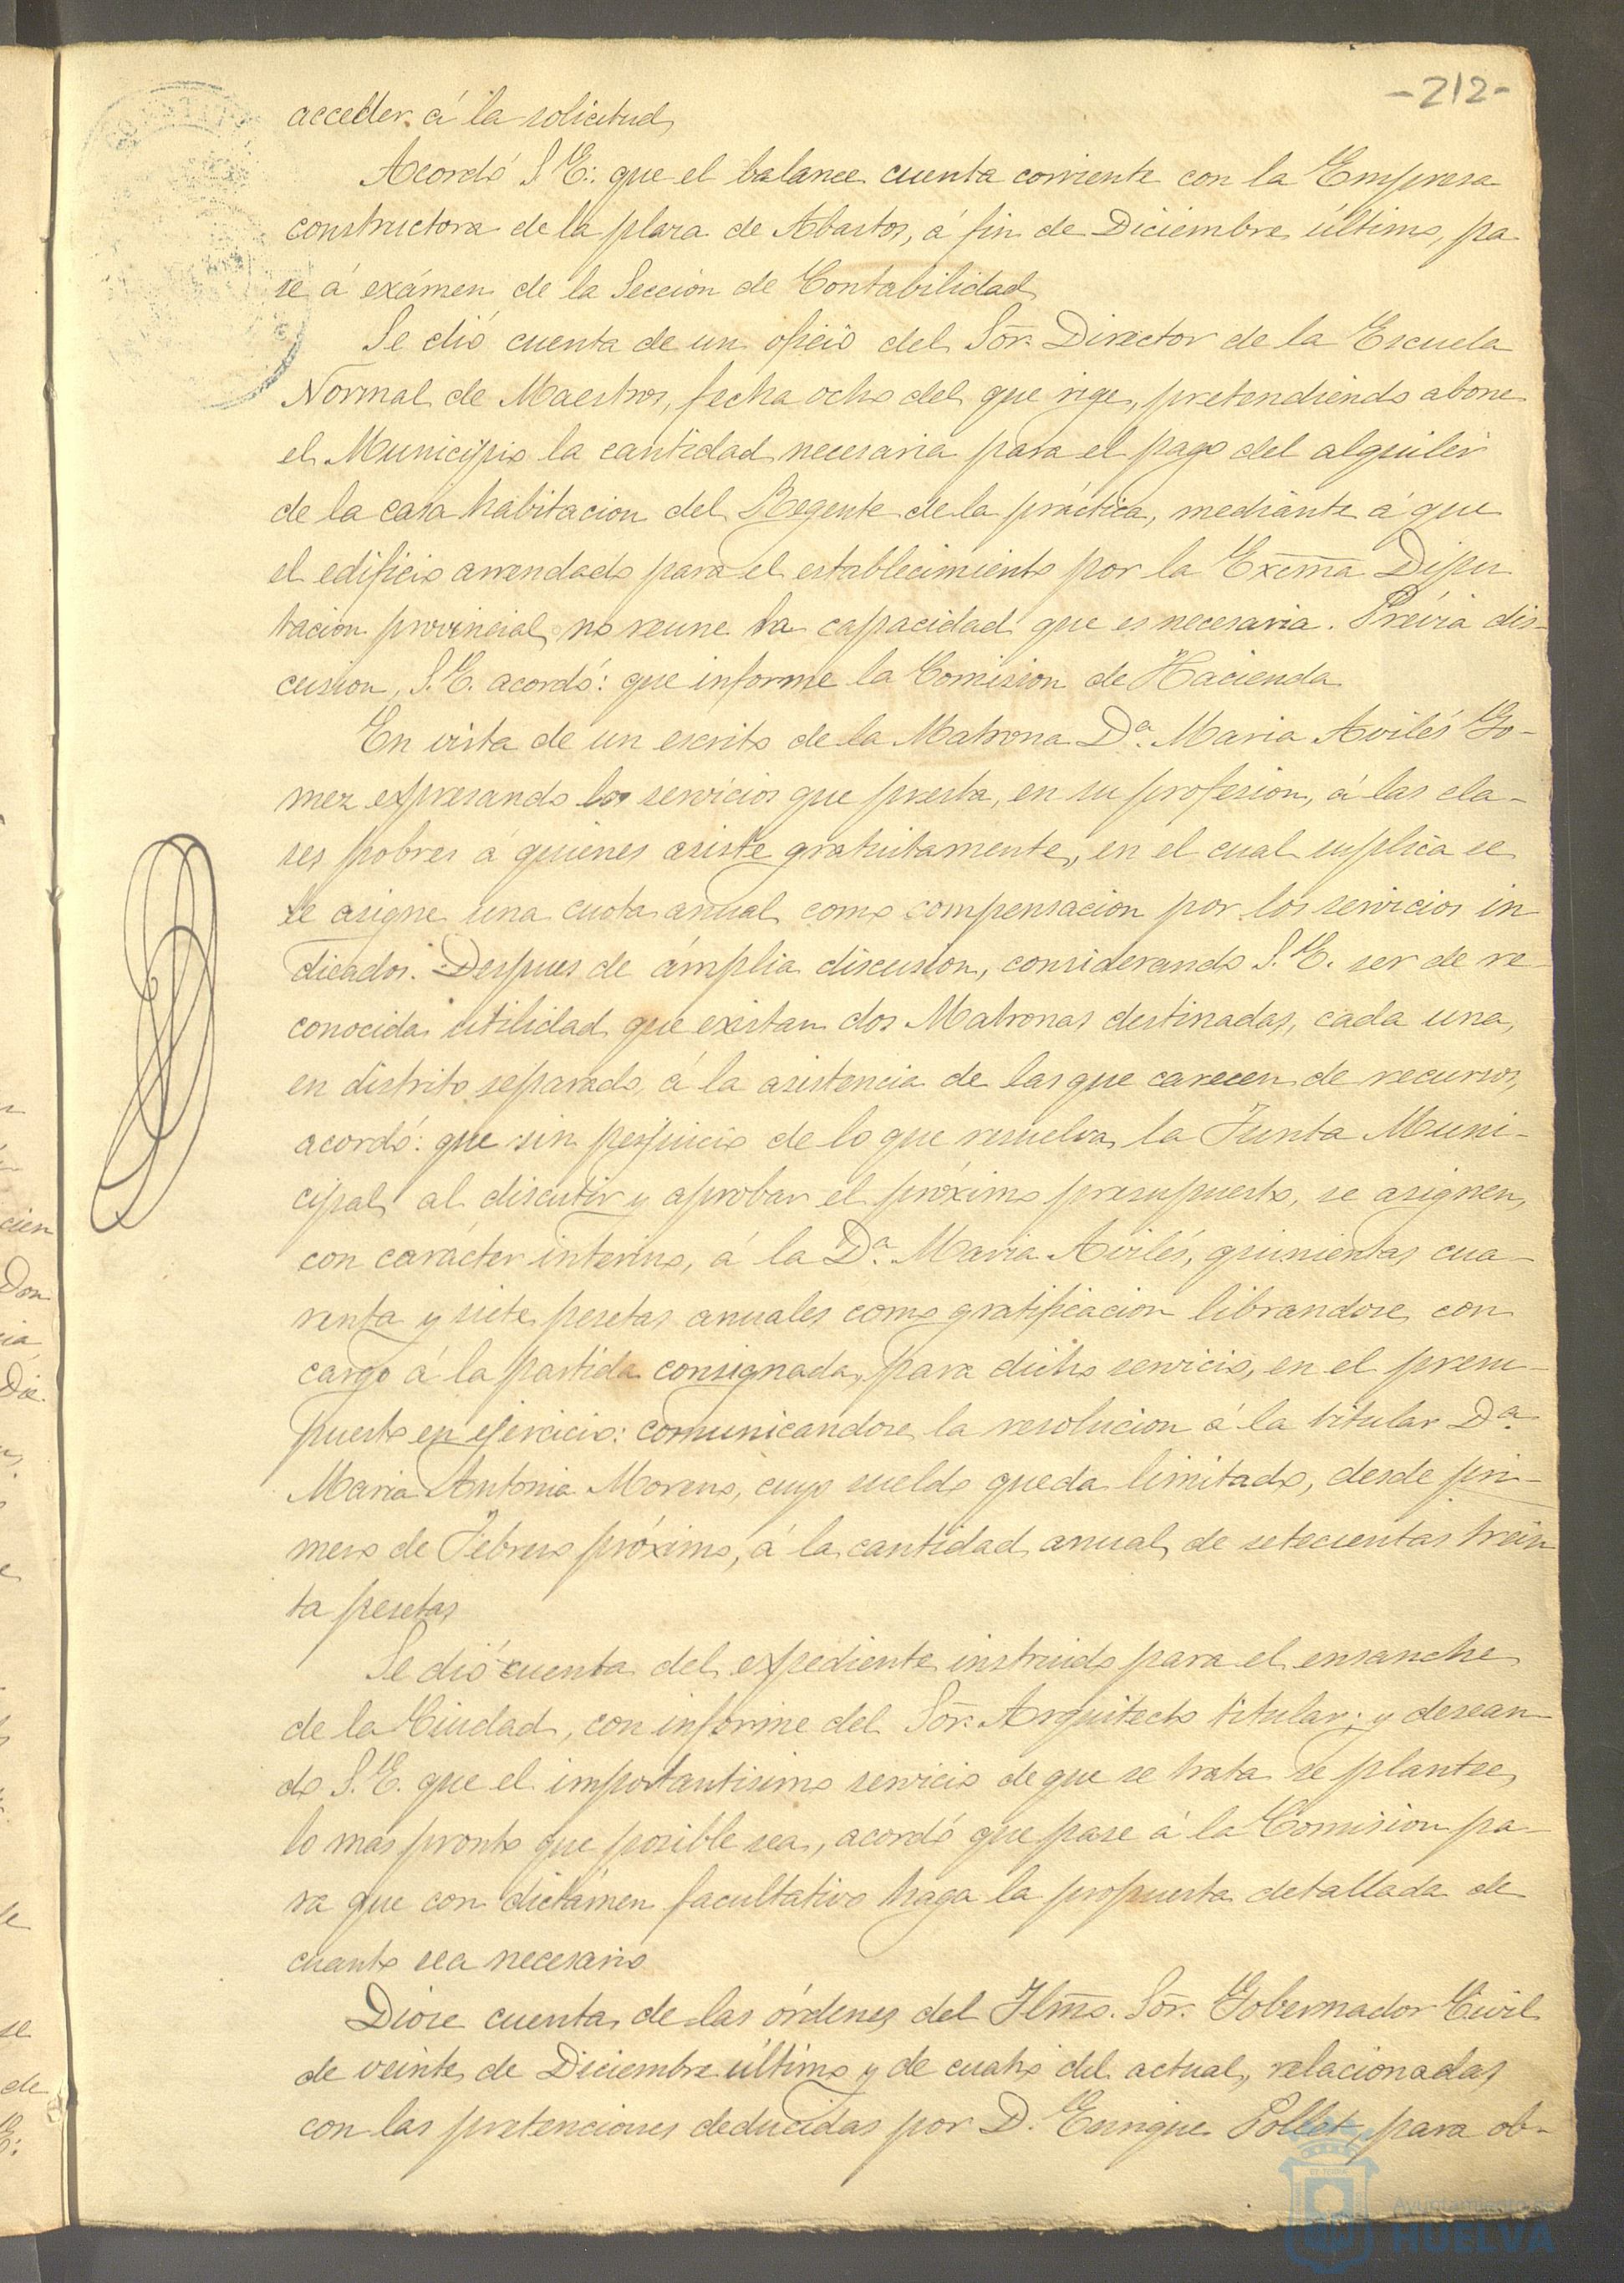 -212-
acceder á la solicitud
Acordó S.E.: que el balance cuenta corriente con la Empresa
constructora de la plaza de Abastos, á fin de Diciembre último, pa
se á exámen de la Sección de Contabilidad
Se dió cuenta de un oficio del Sõr. Director de la Escuela
Normal de Maestros, fecha ocho del que rige, pretendiendo abone
el Municipio la cantidad necesaria para el pago del alquiler
de la casa habitacion del Regente de la práctica, mediante á que
el edificio arrendado para el establecimiento por la Excma Dipu
tacion provincial, no reune la capacidad que es necesaria. Prévia dis-
cusion, S.E. acordó: que informe la Comision de Hacienda
En vista de un escrito de la Matrona Dª. Maria Avilés Go-
mez expresando los servicios que presta, en su profesion, á las cla-
ses pobres á quienes asiste gratuitamente, en el cual suplica se
le asigne una cuota anual como compensacion por los servicios in
dicados. Despues de ámplia discusion, considerando S.E. ser de re
conocida utilidad que existan dos Matronas destinadas, cada una,
en distrito separado, á la asistencia de las que carecen de recursos,
acordó: que sin perjuicio de lo que resuelva la Junta Muni-
cipal, al discutir y aprobar el próximo presupuesto, se asignen,
con carácter interino, á la Dª. Maria Avilés, quinientas cua-
renta y siete pesetas anuales como gratificacion librandose con
cargo á la partida consignada, para dicho servicio, en el presu-
puesto en ejercicio: comunicandose la resolucion á la titular Dª.
Maria Antonia Moreno, cuyo sueldo queda limitado, desde pri-
mero de Febrero próximo, á la cantidad anual, de setecientas trein
ta pesetas
Se dió cuenta del expediente instruido para el ensanche
de la Ciudad, con informe del Sõr. Arquitecto titular; y desean-
do S.E. que el importantisimo servicio de que se trata se plantee,
lo mas pronto que posible sea, acordó que pase á la Comision pa-
ra que con dictámen facultativo haga la propuesta detallada de
cuanto sea necesario
Diose cuenta de las órdenes del Ilmo. Sõr. Gobernador Civil
de veinte de Diciembre último y de cuatro del actual, relacionadas
con las pretenciones deducidas por D. Enrique Pollet, para ob-
Ayuntamiento de
HUELVA